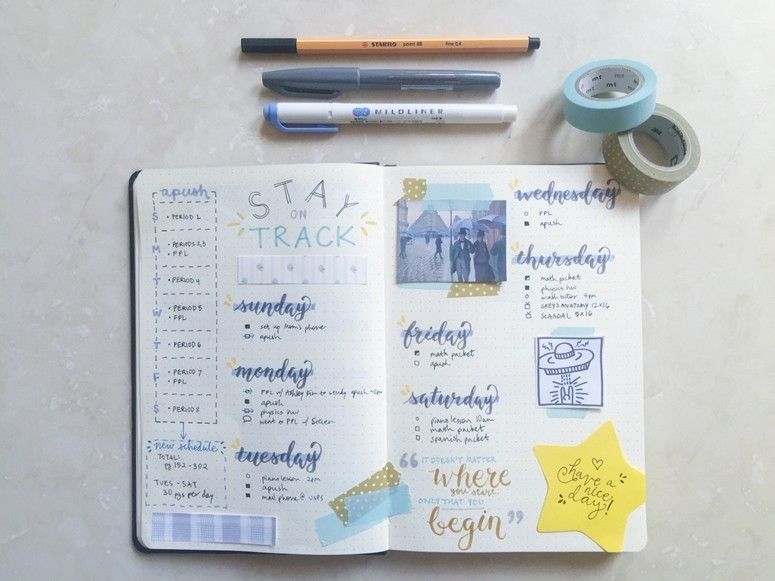 STABILO point 88 fine 0.4
MILDLINER
mt
mt
apush
S • PERIOD 1
M • PERIODS 2,3
• FPL
T • PERIOD 4
W • PERIOD 5
• FPL
T • PERIOD 6
F • PERIOD 7
• FPL
S • PERIOD 8
new schedule
TOTAL:
pg 152 - 302
TUES - SAT
30 pgs per day
STAY
ON
TRACK
sunday
set up mom's phone
apush
monday
FPL w/ Ashley Kim to study apush
apush
physics hw
went to FPL w/ Steven
tuesday
piano lesson 2pm
apush
mail phone @ USPS
wednesday
FPL
apush
thursday
math packet
physics hw
math tutor 4pm
GREYS ANATOMY 12x16
SCANDAL 5x16
friday
math packet
apush
saturday
piano lesson 10am
math packet
spanish packet
“ IT DOESN'T MATTER
where
you start
ONLY THAT YOU
begin ”
have a
nice
day!